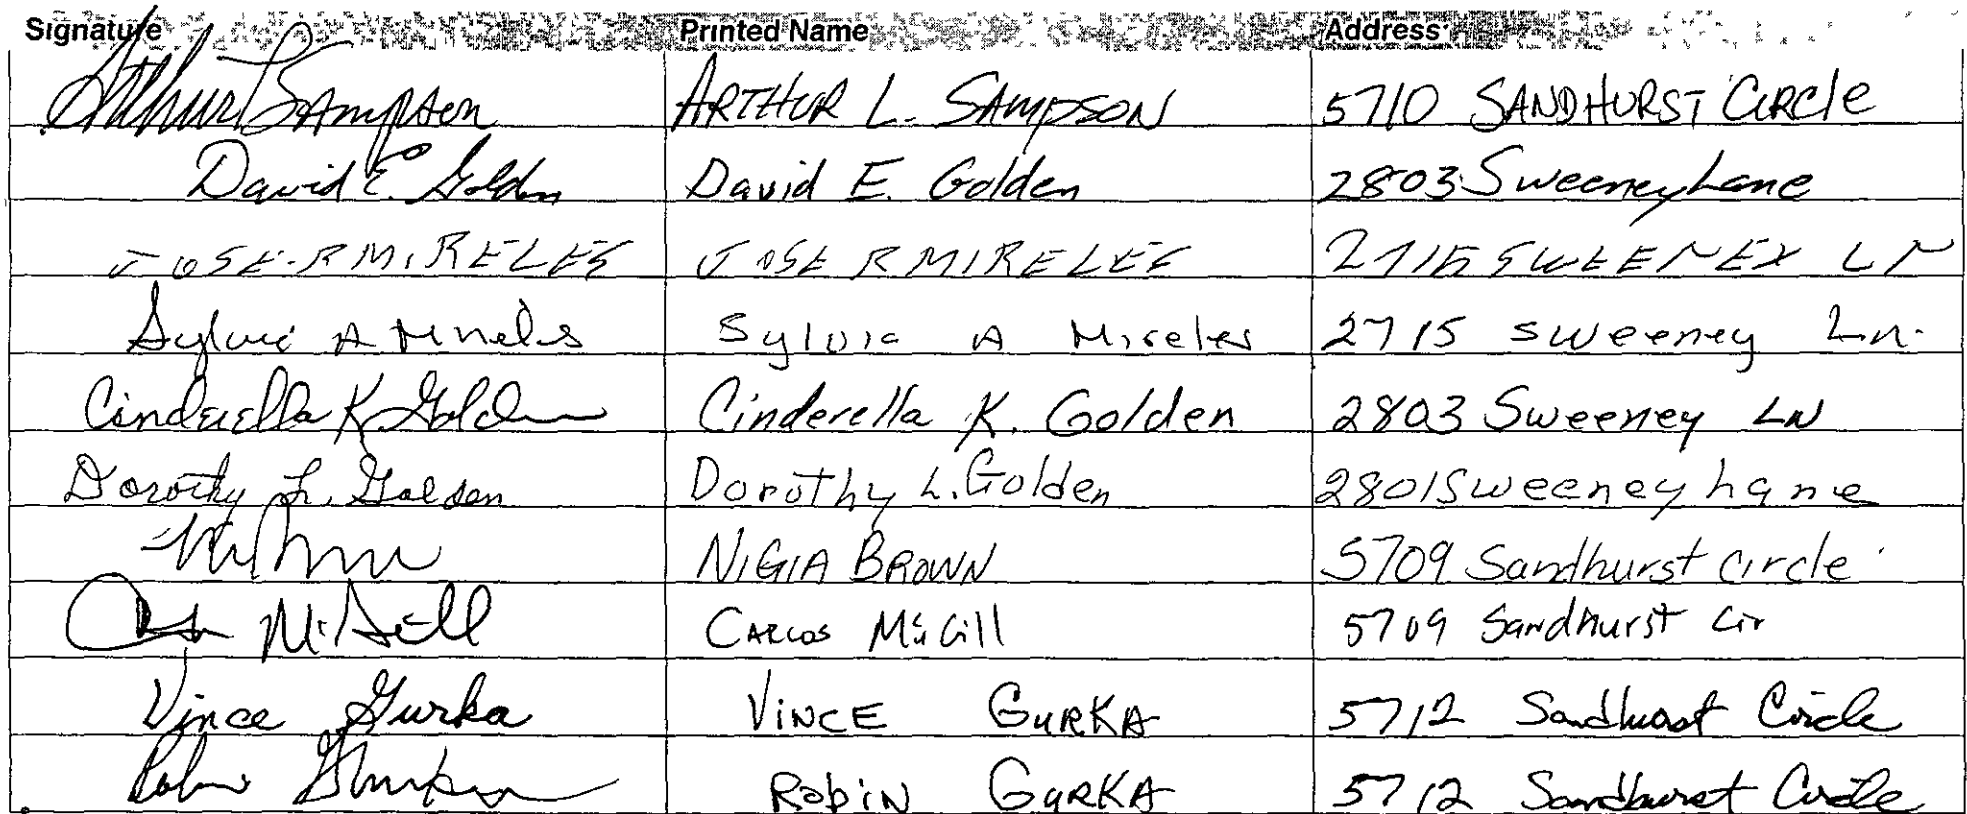 Signature Printed Name Address
Arthur L Sampson ARTHUR L. SAMPSON 5710 SANDHURST CIRCle
David E. Golden David E. Golden 2803 Sweeney Lane
JOSE-R MIRELES JOSE R MIRELES 2715 SWEENEY LN
Sylvia A Mireles Sylvia A Mireles 2715 Sweeney Ln.
Cinderella K Golden Cinderella K. Golden 2803 Sweeney LN
Dorothy L. Golden Dorothy L. Golden 2801 Sweeney Lane
NIGIA BROWN 5709 Sandhurst Circle
McGill CARLOS McGill 5709 Sandhurst Cir
Vince Gurka VINCE GURKA 5712 Sandhurst Circle
Robin Gurka RobiN GURKA 5712 Sandhurst Circle